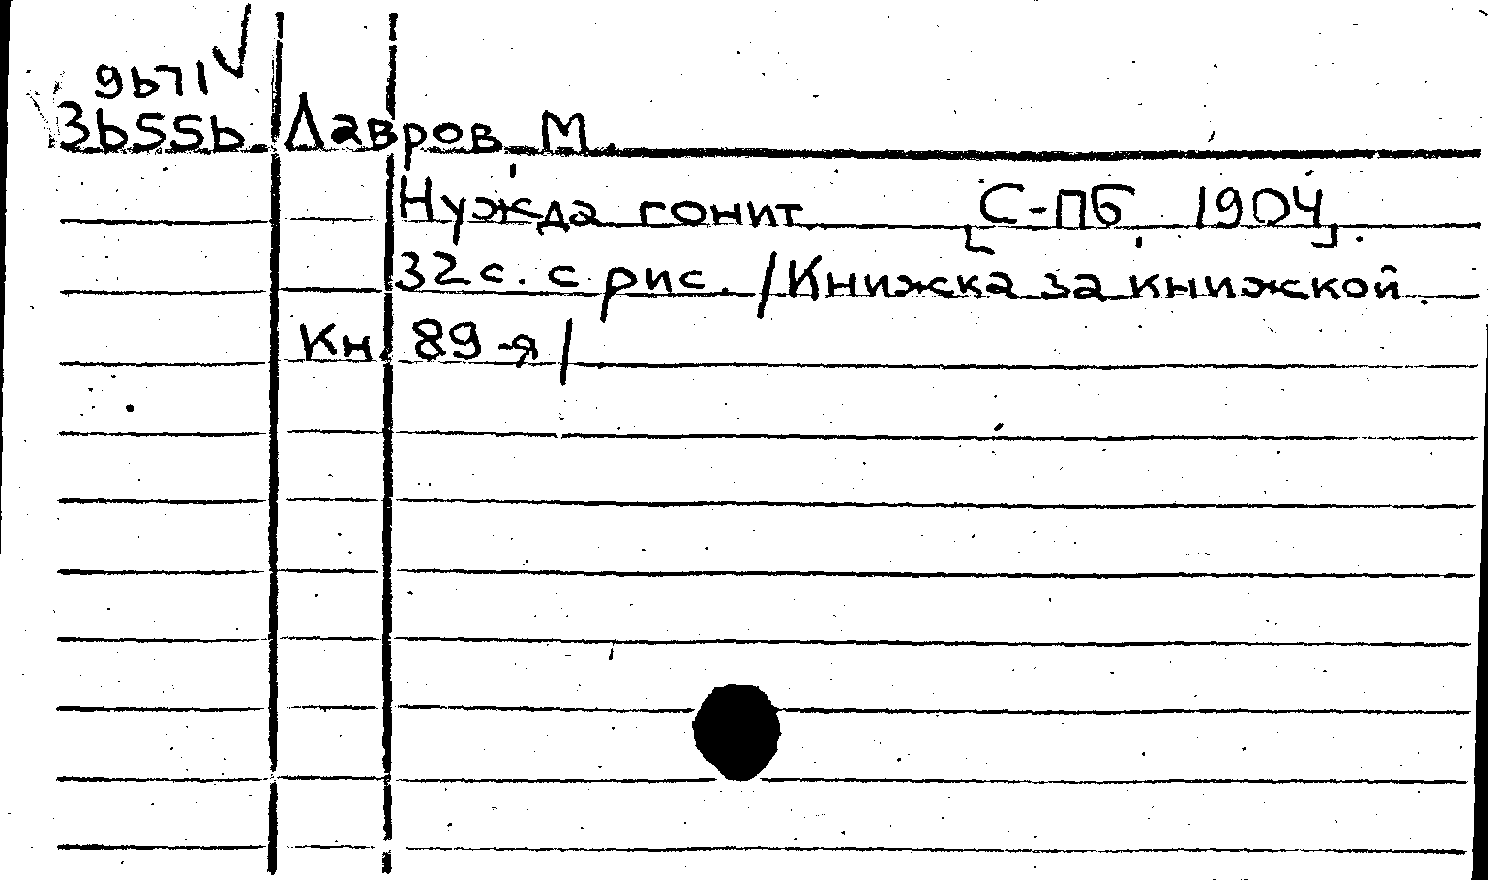 9b71
3b55b. Лавров, М.
Нужда гонит [С-ПБ, 1904].
32 с. с рис. /Книжка за книжкой.
Кн. 89-я/